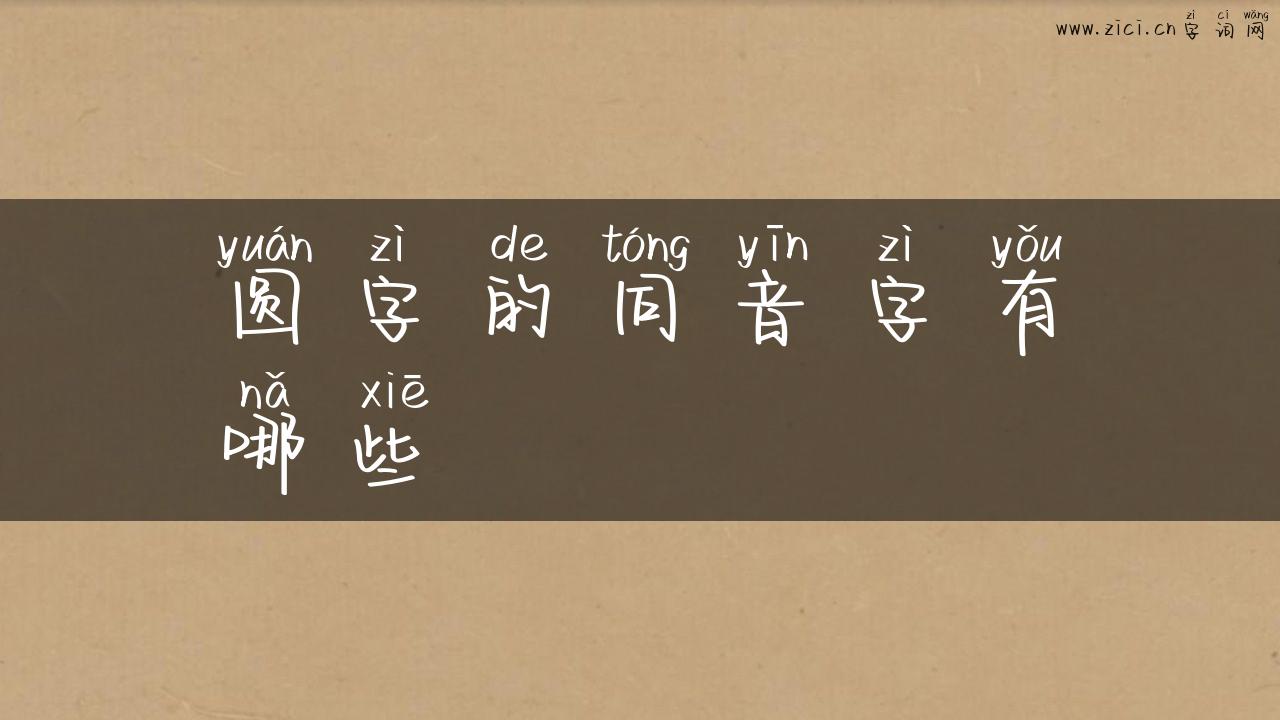 zì cí wǎng
www.zici.cn 字 词 网
yuán zì de tóng yīn zì yǒu
圆 字 的 同 音 字 有
nǎ xiē
哪 些